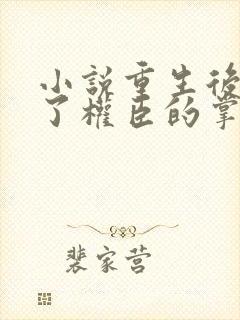 小説重生後
了權臣的掌
裴家营